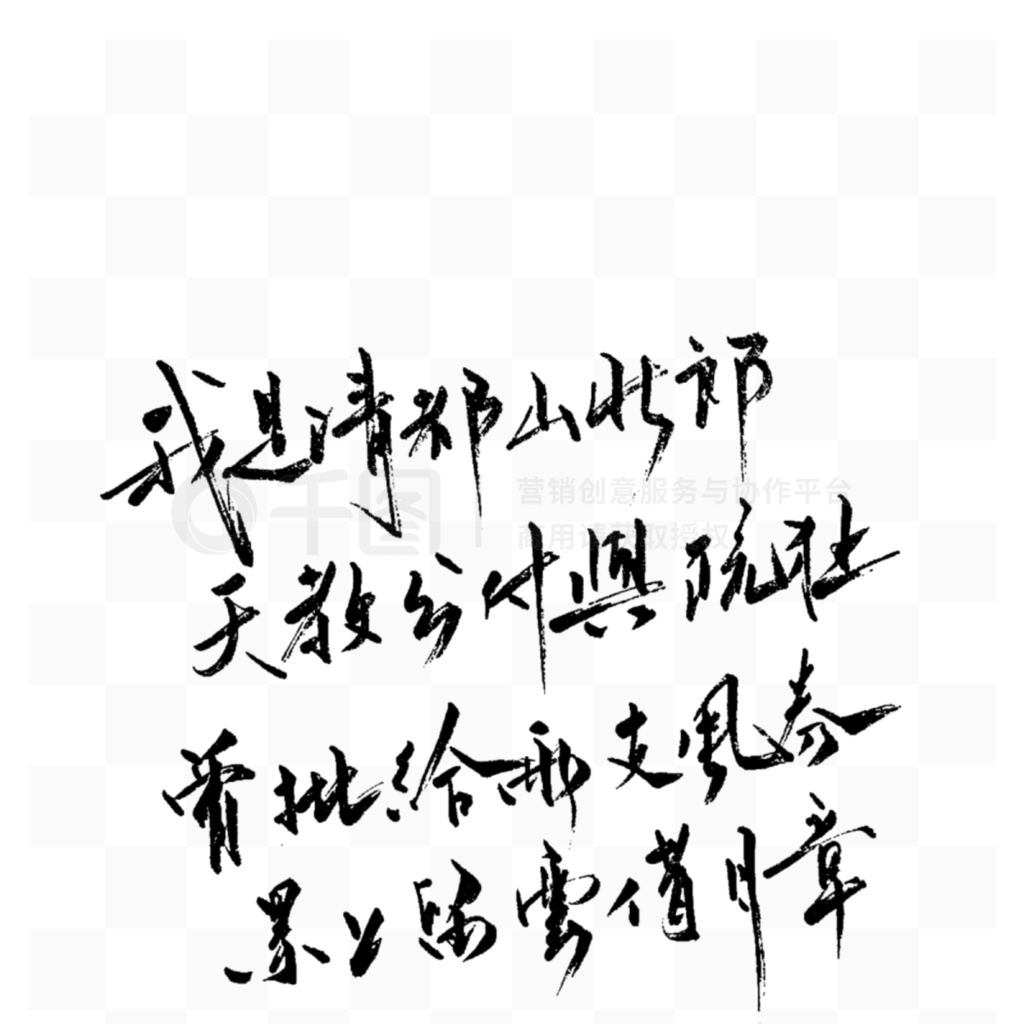 我是清都山水郎
千图
营销创意服务与协作平台
商用请获取授权
天教分付與疏狂
曾批給雨支風券
累上留雲借月章